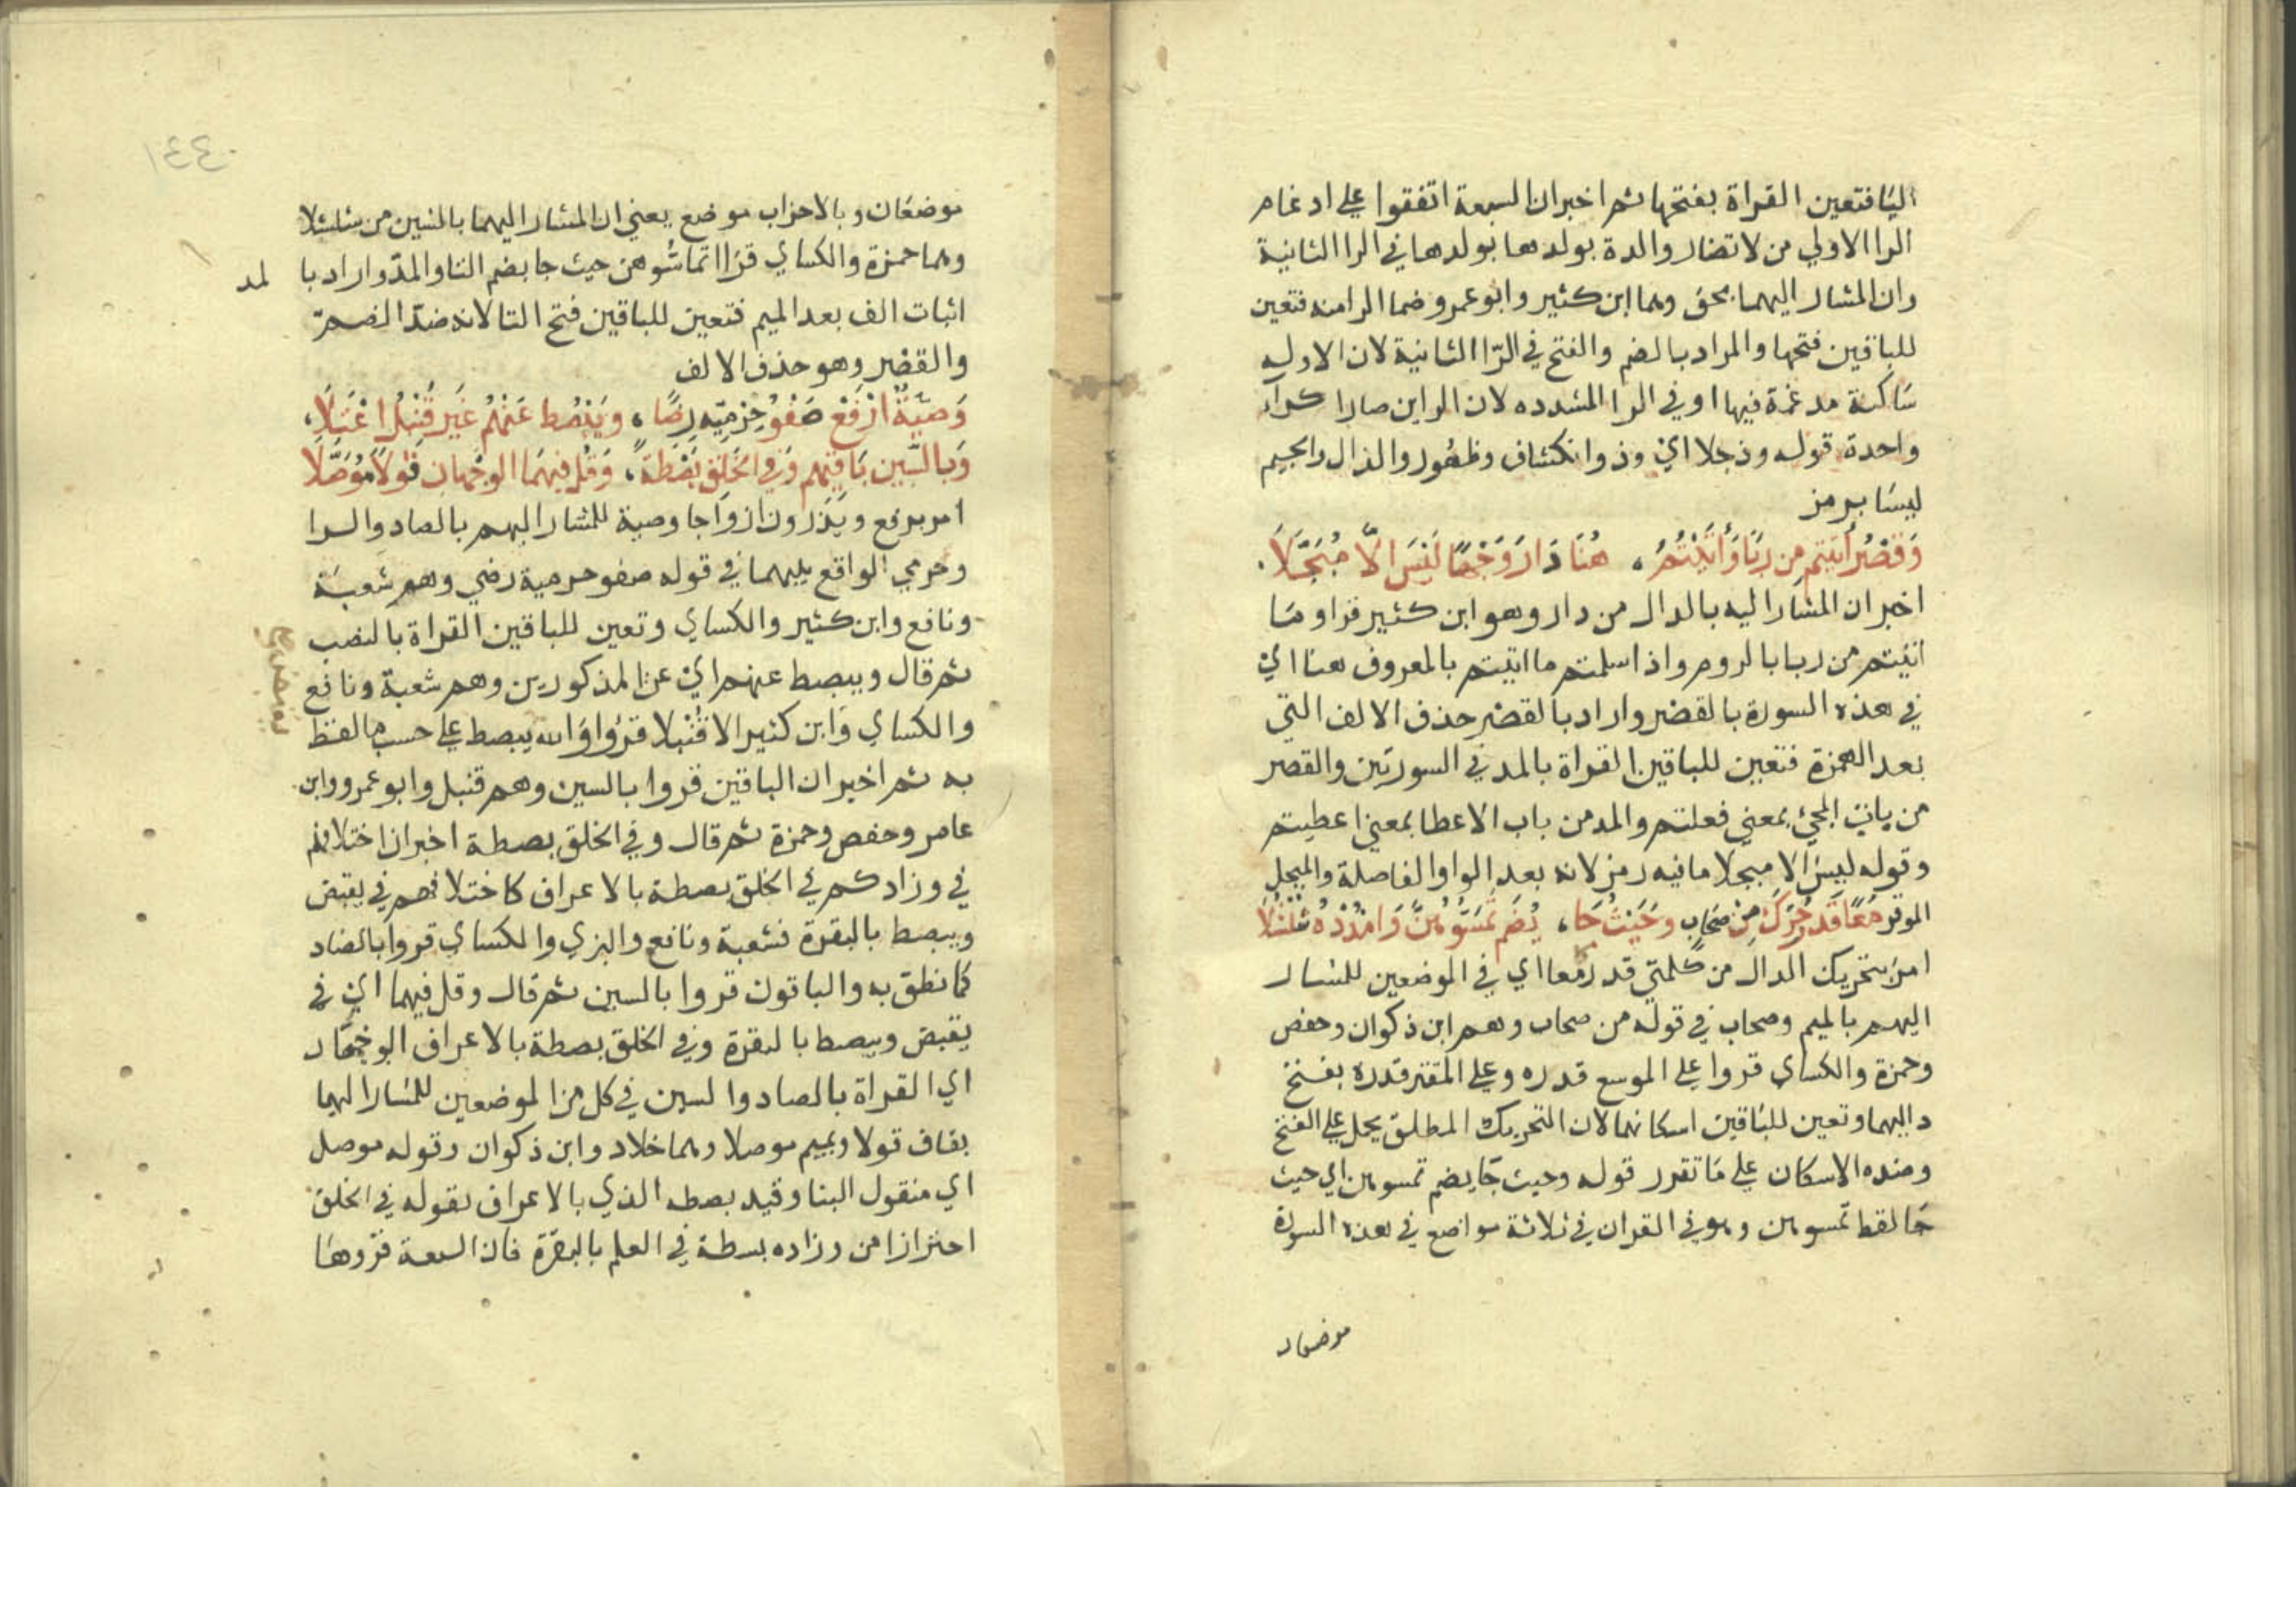 اليا فتعين القراة بفتحها ثم اخبر ان السبعة اتفقوا على ادغام
الرا الاولي من لا تضار والدة بولدها بولدها في الرا الثانية
وان المشار اليهما بحق وهما ابن كثير وابو عمرو ضما الرا منه فتعين
للباقين فتحها والمراد بالضم والفتح في الرّا الثانية لان الاولى
سَاكنة مدغمة فيها او في الرا المشدده لان الراين صارا كرآ
واحدة قوله وذجلا ايْ وذوا نكشاف وظهُور والذال والجيم
ليسَا برمز
وَقَصْرُ أَتَيْتُم مِن رِبًا وَأَتَيْتُمُ ، هُنَا دَارَ وَجْهًا لَيْسَ الاَّ مُبَجَّلاَ .
اخبر ان المشار اليه بالدال من دار وهو ابن كثير قرا ومَا
اتيتم من ربا بالروم واذا سلمتم ما اتيتم بالمعروف هنا ايْ
في هذه السورة بالقصْر واراد بالقصْر حذف الالف التي
بعد الهمزة فتعين للباقين القراة بالمد في السورتين والقصر
من باب المجئ بمعني فعلتم والمد من باب الاعطا بمعني اعطيتم
وقوله ليسَ الا مبجلا ما فيه رمز لانه بعد الواو الفاصلة والمبجل
الموقر مَعًا قَدْرُ حَرِّكْ مِنْ صَحَابٍ وَحَيْثُ جَا ، يُضَم تَمَسُّوهُنَّ وَامْدُدْهُ شُلْشُلاَ
امرَ بتحريك الدال من كلمتي قدر معا اي في الموضعين للمشار
اليهم بالميم وصحاب في قوله من صحاب وهم ابن ذكوان وحفص
وحمزة والكساي قروا على الموسع قدره وعلى المقتر قدره بفتح
داليهما وتعين للبَاقين اسكانهما لان التحريك المطلق يحمل على الفتح
وضده الاسكان على مَا تقرر قوله وحيث جَا يضم تمسوهن اي حيث
جَا لفظ تمسوهن وهو في القران في ثلاثة مواضع في هذه السورة
موضعان
١٤٤
موضعَان وبالاحزاب موضع يعني ان المشار اليهما بالشين من شلشلا
وهما حمزة والكساي قرَاا تماسُّوهن حيث جا بضم التا والمدّ واراد با لمد
اثبات الف بعد الميم فتعين للباقين فتح التا لانه ضدّ الضم
والقصْر وهو حذف الالف
وَصِيَّةً ارْفَعْ صَفْوُ حِرْمِيِّهِ رِضًا ، وَيَبْصُطُ عَنْهُمْ غَيْرَ قُنْبُلٍ اعْتَلاَ ،
وَبِالسِّينِ بَاقِيهِم وَفِي الخَلْقِ بَصْطَةً ، وَقُلْ فِيهِمَا الوَجْهَانِ قَوْلاً مُوَصَّلاَ
امر برفع ويَذَرون ازوَاجا وصية للمشار اليهم بالصاد والرا
وحرمي الواقع بينهما في قوله صفو حرميه رضي وهم شعبَة
ونافع وابن كثير والكساي وتعين للباقين القراة بالنصب
ثم قال ويبصط عنهم ايْ عن المذكورين وهم شعبة ونافع
والكساي وَابن كثير الا قُنْبلا قرؤا وَالله يبصط على حسب ما لفظ
به ثم اخبر ان الباقين قروا بالسين وهم قنبل وابو عمرو وابن
عامر وحفص وحمزة ثم قال وفي الخلق بصطة اخبر ان اختلافهم
في وزادكم في الخلق بصطة بالاعراف كاختلافهم في يقبض
ويبصط بالبقرة فشعبة ونافع والبزي والكساي قروا بالصاد
كما نطق به والباقون قروا بالسين ثم قال وقل فيهما ايْ في
يقبض ويبصط بالبقرة وفي الخلق بصطة بالاعراف الوجهَان
اي القراة بالصاد والسين في كل من الموضعين للمشار اليهما
بقاف قولا وبميم موصلا وهما خلاد وابن ذكوان وقوله موصل
اي منقول الينا وقيد بصطه الذي بالاعراف بقوله في الخلق
احترازا من وزاده بسطة في العلم بالبقرة فان السبعة قرَوهَا